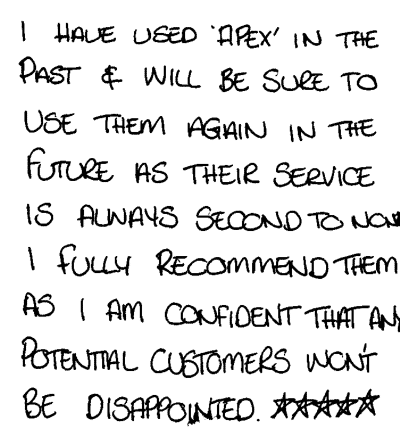 I HAVE USED 'APEX' IN THE
PAST & WILL BE SURE TO
USE THEM AGAIN IN THE
FUTURE AS THEIR SERVICE
IS ALWAYS SECOND TO NONE
I FULLY RECOMMEND THEM
AS I AM CONFIDENT THAT ANY
POTENTIAL CUSTOMERS WON'T
BE DISAPPOINTED. ☆☆☆☆☆